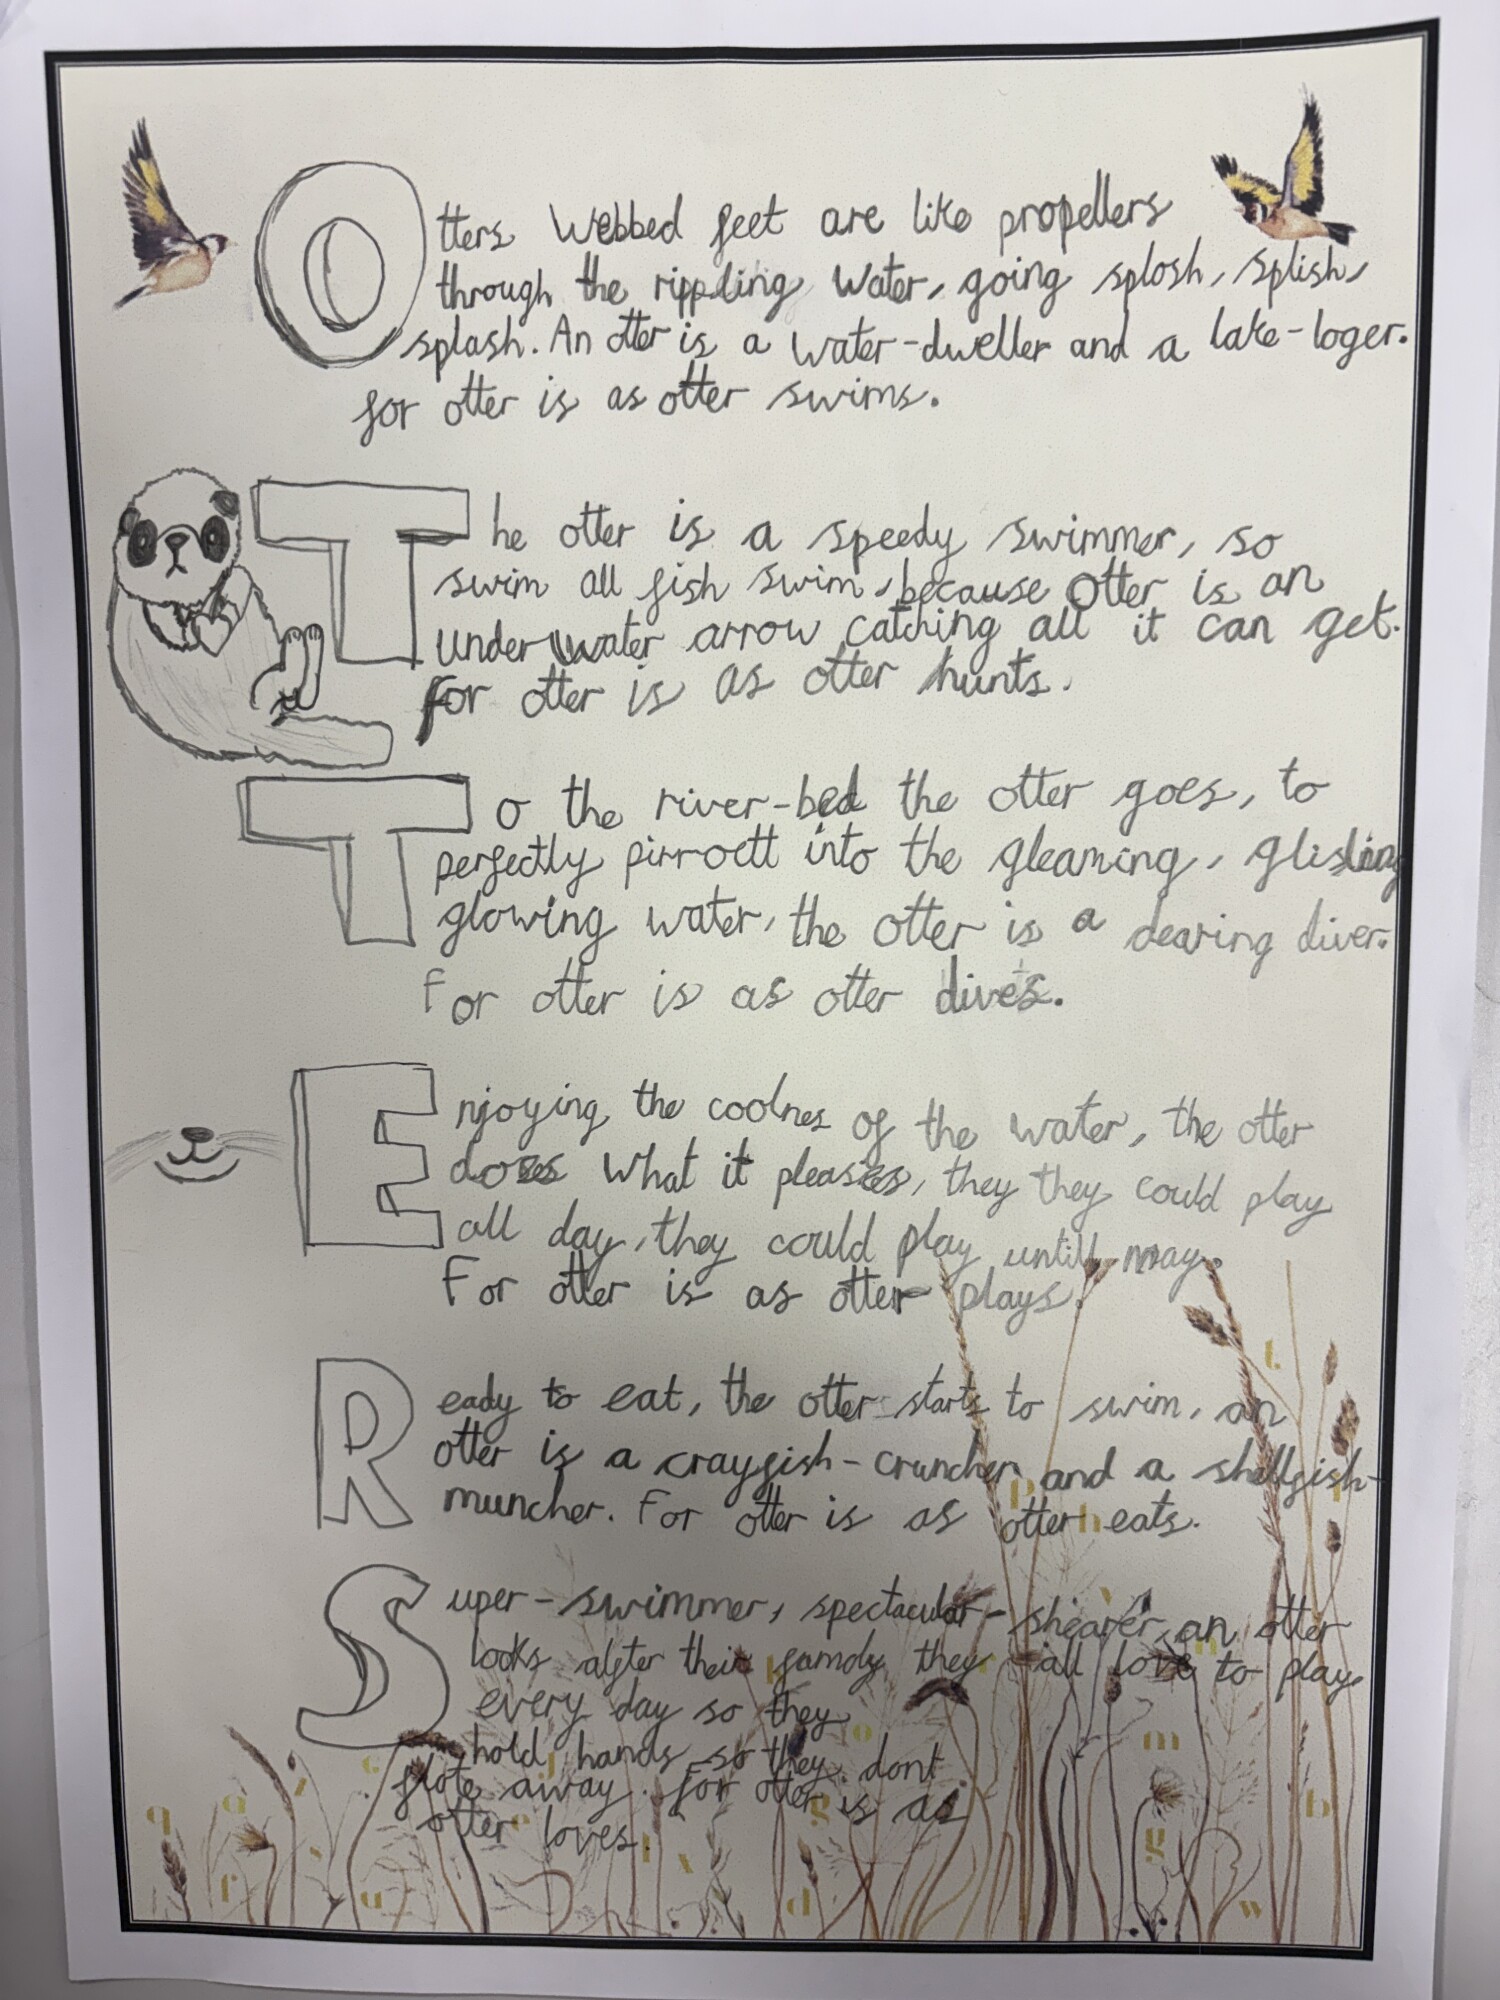 Otters Webbed feet are like propellers
through the rippling Water, going splosh, splish,
splash. An otter is a water-dweller and a lake-loger.
for otter is as otter swims.
The otter is a speedy swimmer, so
swim all fish swim, because Otter is an
underwater arrow catching all it can get.
For otter is as otter hunts.
To the river-bed the otter goes, to
perfectly pirroett into the gleaming, glisling
glowing water, the otter is a dearing diver.
For otter is as otter dives.
Enjoying the coolnes of the water, the otter
does what it pleases, they they could play
all day, they could play untill may.
For otter is as otter plays.
Ready to eat, the otter starts to swim, an
otter is a crayfish-cruncher and a shellfish-
muncher. For otter is as otter eats.
Super-swimmer, spectacular-shearer, an otter
looks after their famdy they all love to play
every day so they
hold hands so they dont
flote away. for otter is as
otter loves.